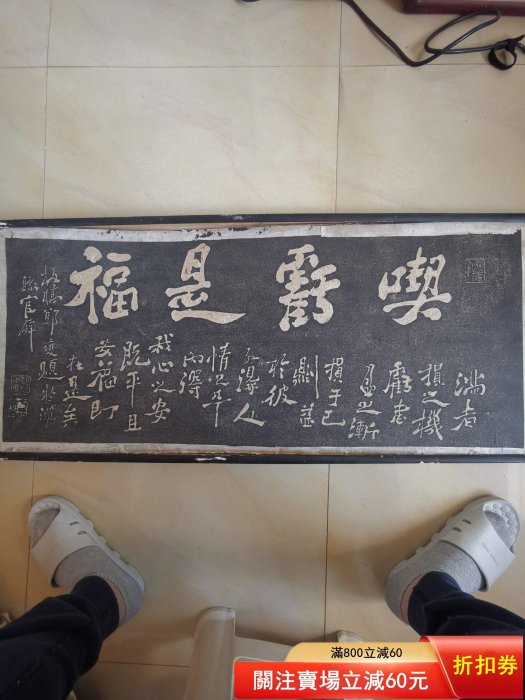 喫虧是福
滿者
損之機
虧者
盈之漸
損于己
則益
於彼
外得人
情之平
內得
我心之安
既平且
安福即
在是矣
板橋鄭燮題於濰
縣官廨
滿800立減60
關注賣場立減60元
折扣券